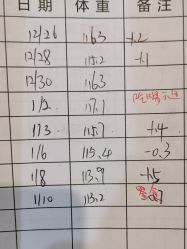 日期 体重 备注
12/26 116.3 -1.2
12/28 115.2 -1.1
12/30 116.3
1/2 117.1
1/3 115.7 -1.4
1/6 115.4 -0.3
1/8 113.9 -1.5
1/10 113.2